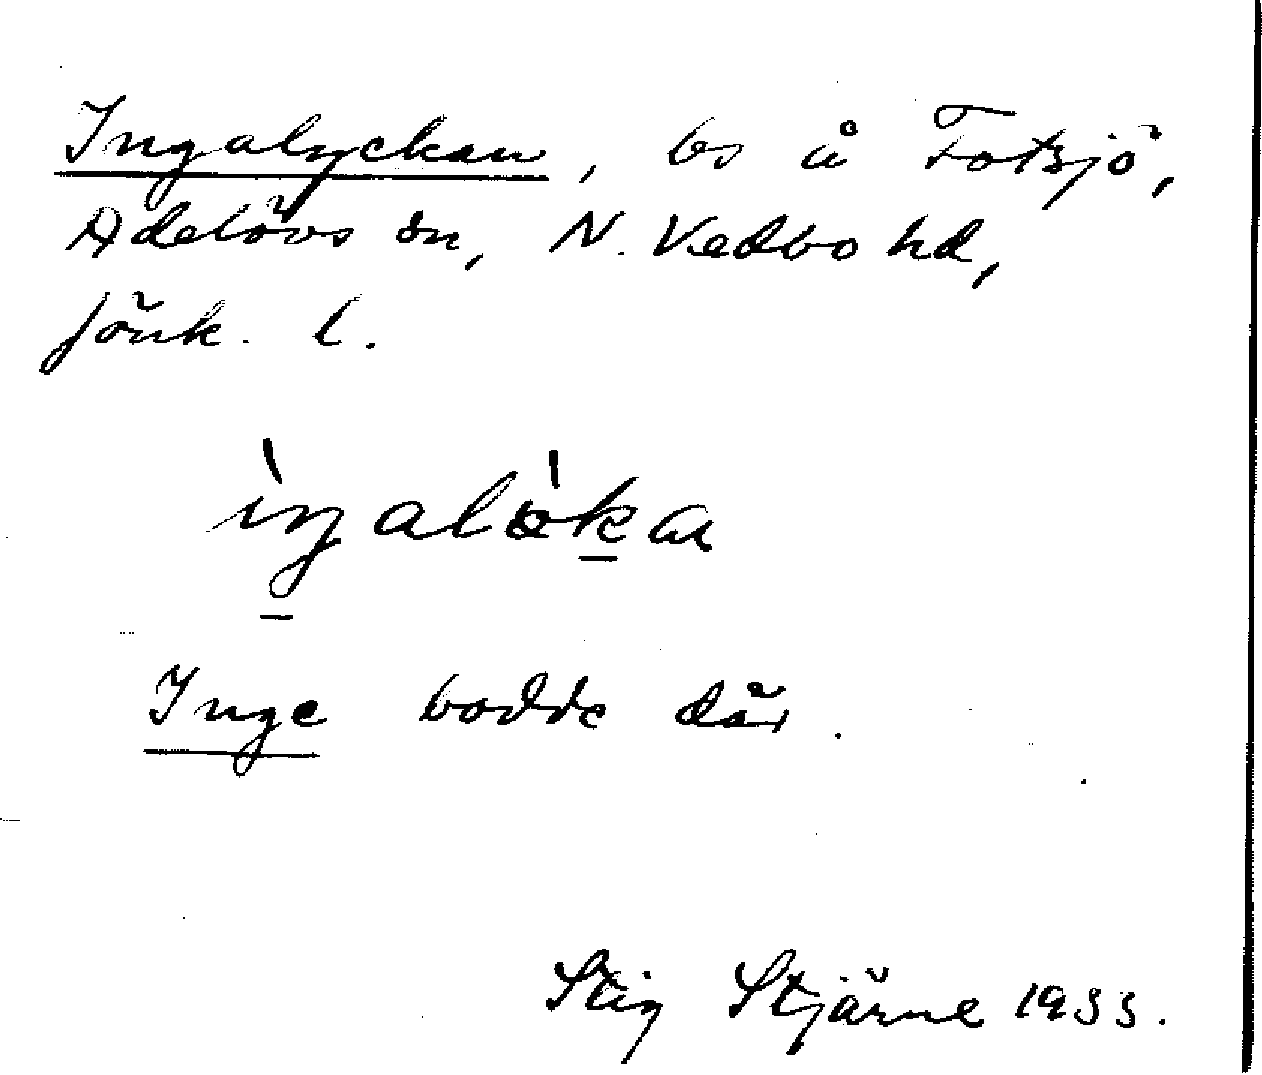 Ingalyckan, bs å Fotsjö,
Adelövs sn, N. Vedbo hd,
Jönk. l.
ìŋalòka
Inge bodde där.
Stig Stjärne 1933.